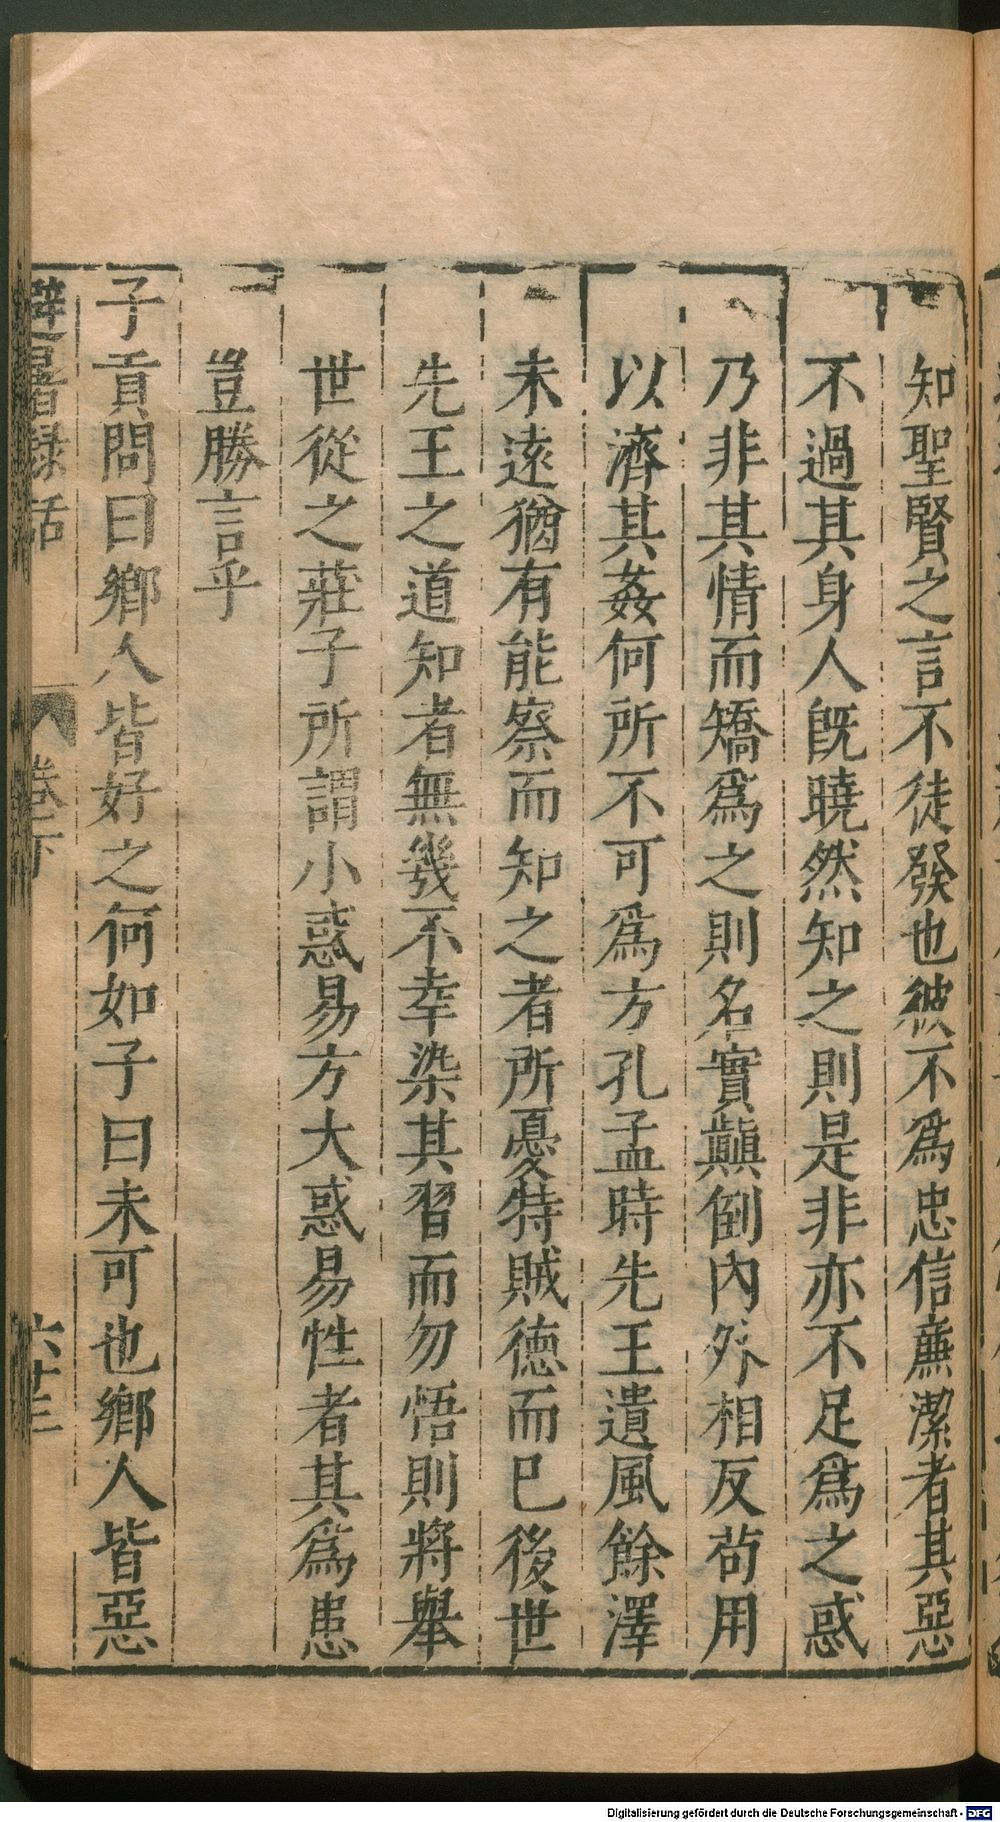 知聖賢之言不徒發也彼不爲忠信亷潔者其惡
不過其身人旣曉然知之則是非亦不足爲之惑
乃非其情而矯爲之則名實顚倒內外相反苟用
以濟其姦何所不可爲方孔孟時先王遺風餘澤
未遠猶有能察而知之者所憂特賊德而已後世
先王之道知者無幾不幸染其習而勿悟則將舉
世從之莊子所謂小惑易方大惑易性者其爲患
豈勝言乎
子貢問曰鄉人皆好之何如子曰未可也鄉人皆惡
避暑錄話 卷下 六十三
Digitalisierung gefördert durch die Deutsche Forschungsgemeinschaft - DFG